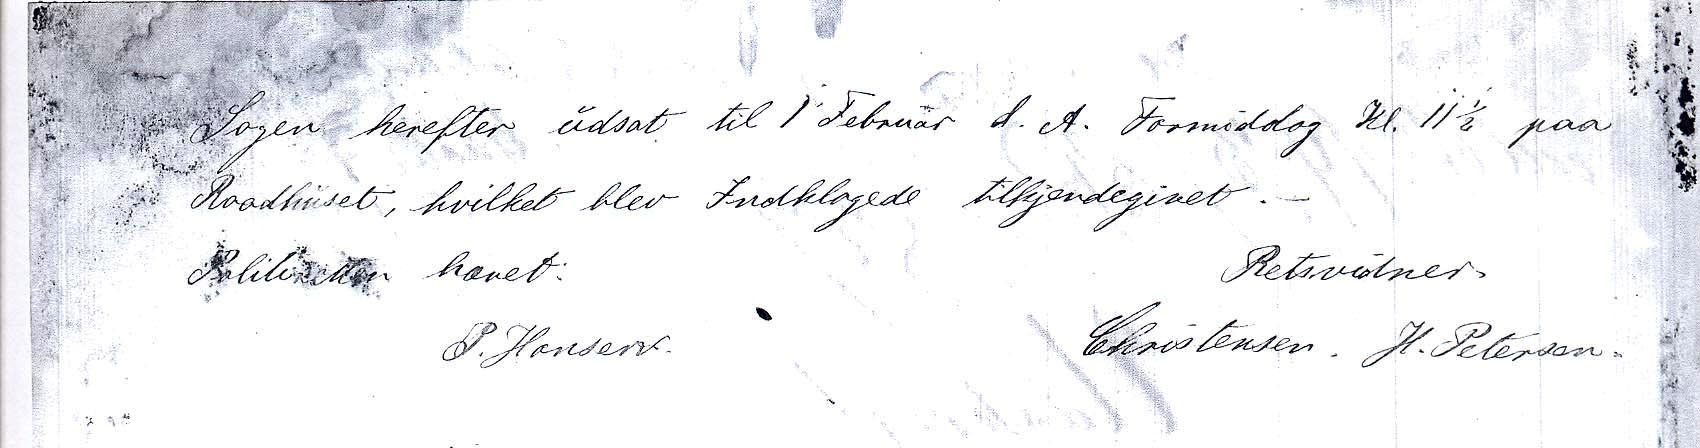 Sagen herefter udsat til 1' Februar d. A. Formiddag Kl. 11 1/2 paa
Raadhuset, hvilket blev Indklagede tilkjendegivet. —
Politiretten hævet.
Retsvidner.
P. Hansen.
Christensen. H. Petersen.